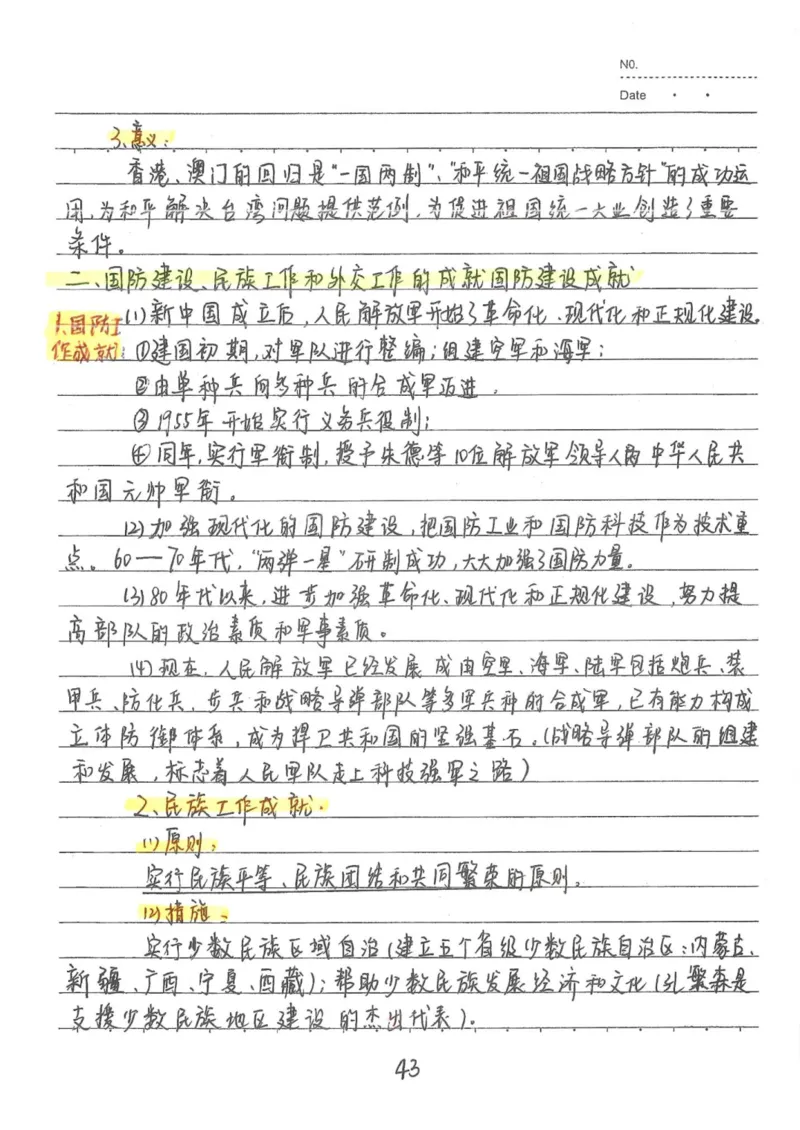 NO.
Date
3、意义：
香港、澳门的回归是“一国两制”、“和平统一祖国战略方针”的成功运
用，为和平解决台湾问题提供范例，为促进祖国统一大业创造了重要
条件。
二、国防建设、民族工作和外交工作的成就国防建设成就
1、国防工
作成就：
(1)新中国成立后，人民解放军开始了革命化、现代化和正规化建设。
①建国初期，对军队进行整编；组建空军和海军；
②由单种兵向多种兵的合成军迈进。
③1955年开始实行义务兵役制；
④同年，实行军衔制，授予朱德等10位解放军领导人两中华人民共
和国元帅军衔。
(2)加强现代化的国防建设，把国防工业和国防科技作为技术重
点。60—70年代，“两弹一星”研制成功，大大加强了国防力量。
(3)80年代以来，进步加强革命化、现代化和正规化建设，努力提
高部队的政治素质和军事素质。
(4)现在，人民解放军已经发展成由空军、海军、陆军包括炮兵、装
甲兵、防化兵、步兵和战略导弹部队等多军兵种的合成军，已有能力构成
立体防御体系，成为捍卫共和国的坚强基石。（战略导弹部队的组建
和发展，标志着人民军队走上科技强军之路）
2、民族工作成就.
(1)原则：
实行民族平等、民族团结和共同繁荣的原则。
(2)措施：
实行少数民族区域自治（建立五个省级少数民族自治区：内蒙古、
新疆、广西、宁夏、西藏）；帮助少数民族发展经济和文化（孔繁森是
支援少数民族地区建设的杰出代表）.
43